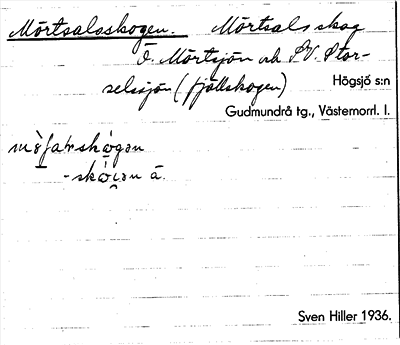 Mörtsalsskogen. Mörtsalsskog
Ö. Mörtsjön och SV. Stor-
selsjön (fjällskogen) Högsjö s:n
Gudmundrå tg., Västernorrl. l.
-skogen ä.
Sven Hiller 1936.